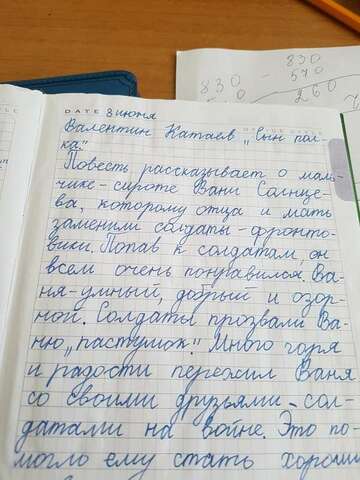 830
- 830
570
260
DATE 8 июня
Валентин Катаев „Сын пол-
ка"
Повесть рассказывает о маль-
чике-сироте Вани Солнце-
ва, которому отца и мать
заменили солдаты-фронто-
вики. Попав к солдатам, он
всем очень понравился. Ва-
ня-умный, добрый и озор-
ной. Солдаты прозвали Ва-
ню „пастушок". Много горя
и радости пережил Ваня
со своими друзьями-сол-
датами на войне. Это по-
могло ему стать хорошим